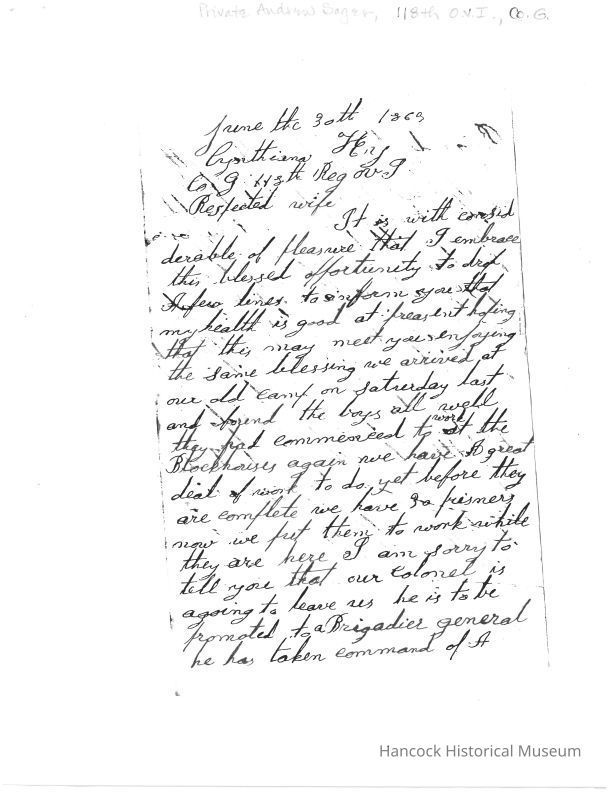 Private Andrew Sager, 118th O.V.I., Co. G.
June the 30th 1863
Cynthiana Ky
Co G 118th Reg OVI
Respected wife
It is with consid
derable of pleasure that I embrace
this blessed offortunity to drop
A few lines to inform you that
my health is good at preasent hoping
that this may meet you enjoying
the same blessing we arrived at
our old camp on Saturday last
and found the boys all well
they had commenced to work at the
Blockhouses again we have A great
deal of work to do yet before they
are complete we have 30 prisners
now we put them to work while
they are here I am sorry to
tell you that our Colonel is
agoing to leave us he is to be
promoted to a Brigadier general
he has taken command of A
Hancock Historical Museum